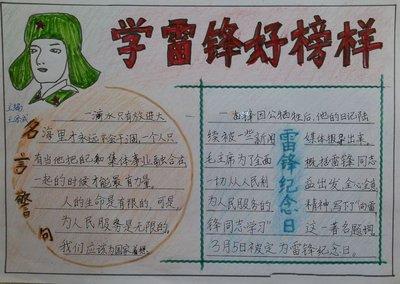 学雷锋好榜样
主编:
名言警句
一滴水只有放进大
海里才永远不会干涸,一个人只
有当他把自己和集体事业融合在
一起的时候才能最有力量。
人的生命是有限的,可是,
为人民服务是无限的。
我们应该为国家着想。
雷锋纪念日
雷锋因公牺牲后,他的日记陆
续被一些新闻媒体报导出来。
毛主席为了全面概括雷锋同志
一切从人民利益出发,全心全意
为人民服务的精神,写下了“向雷
锋同志学习”这一著名题词,
3月5日被定为雷锋纪念日。